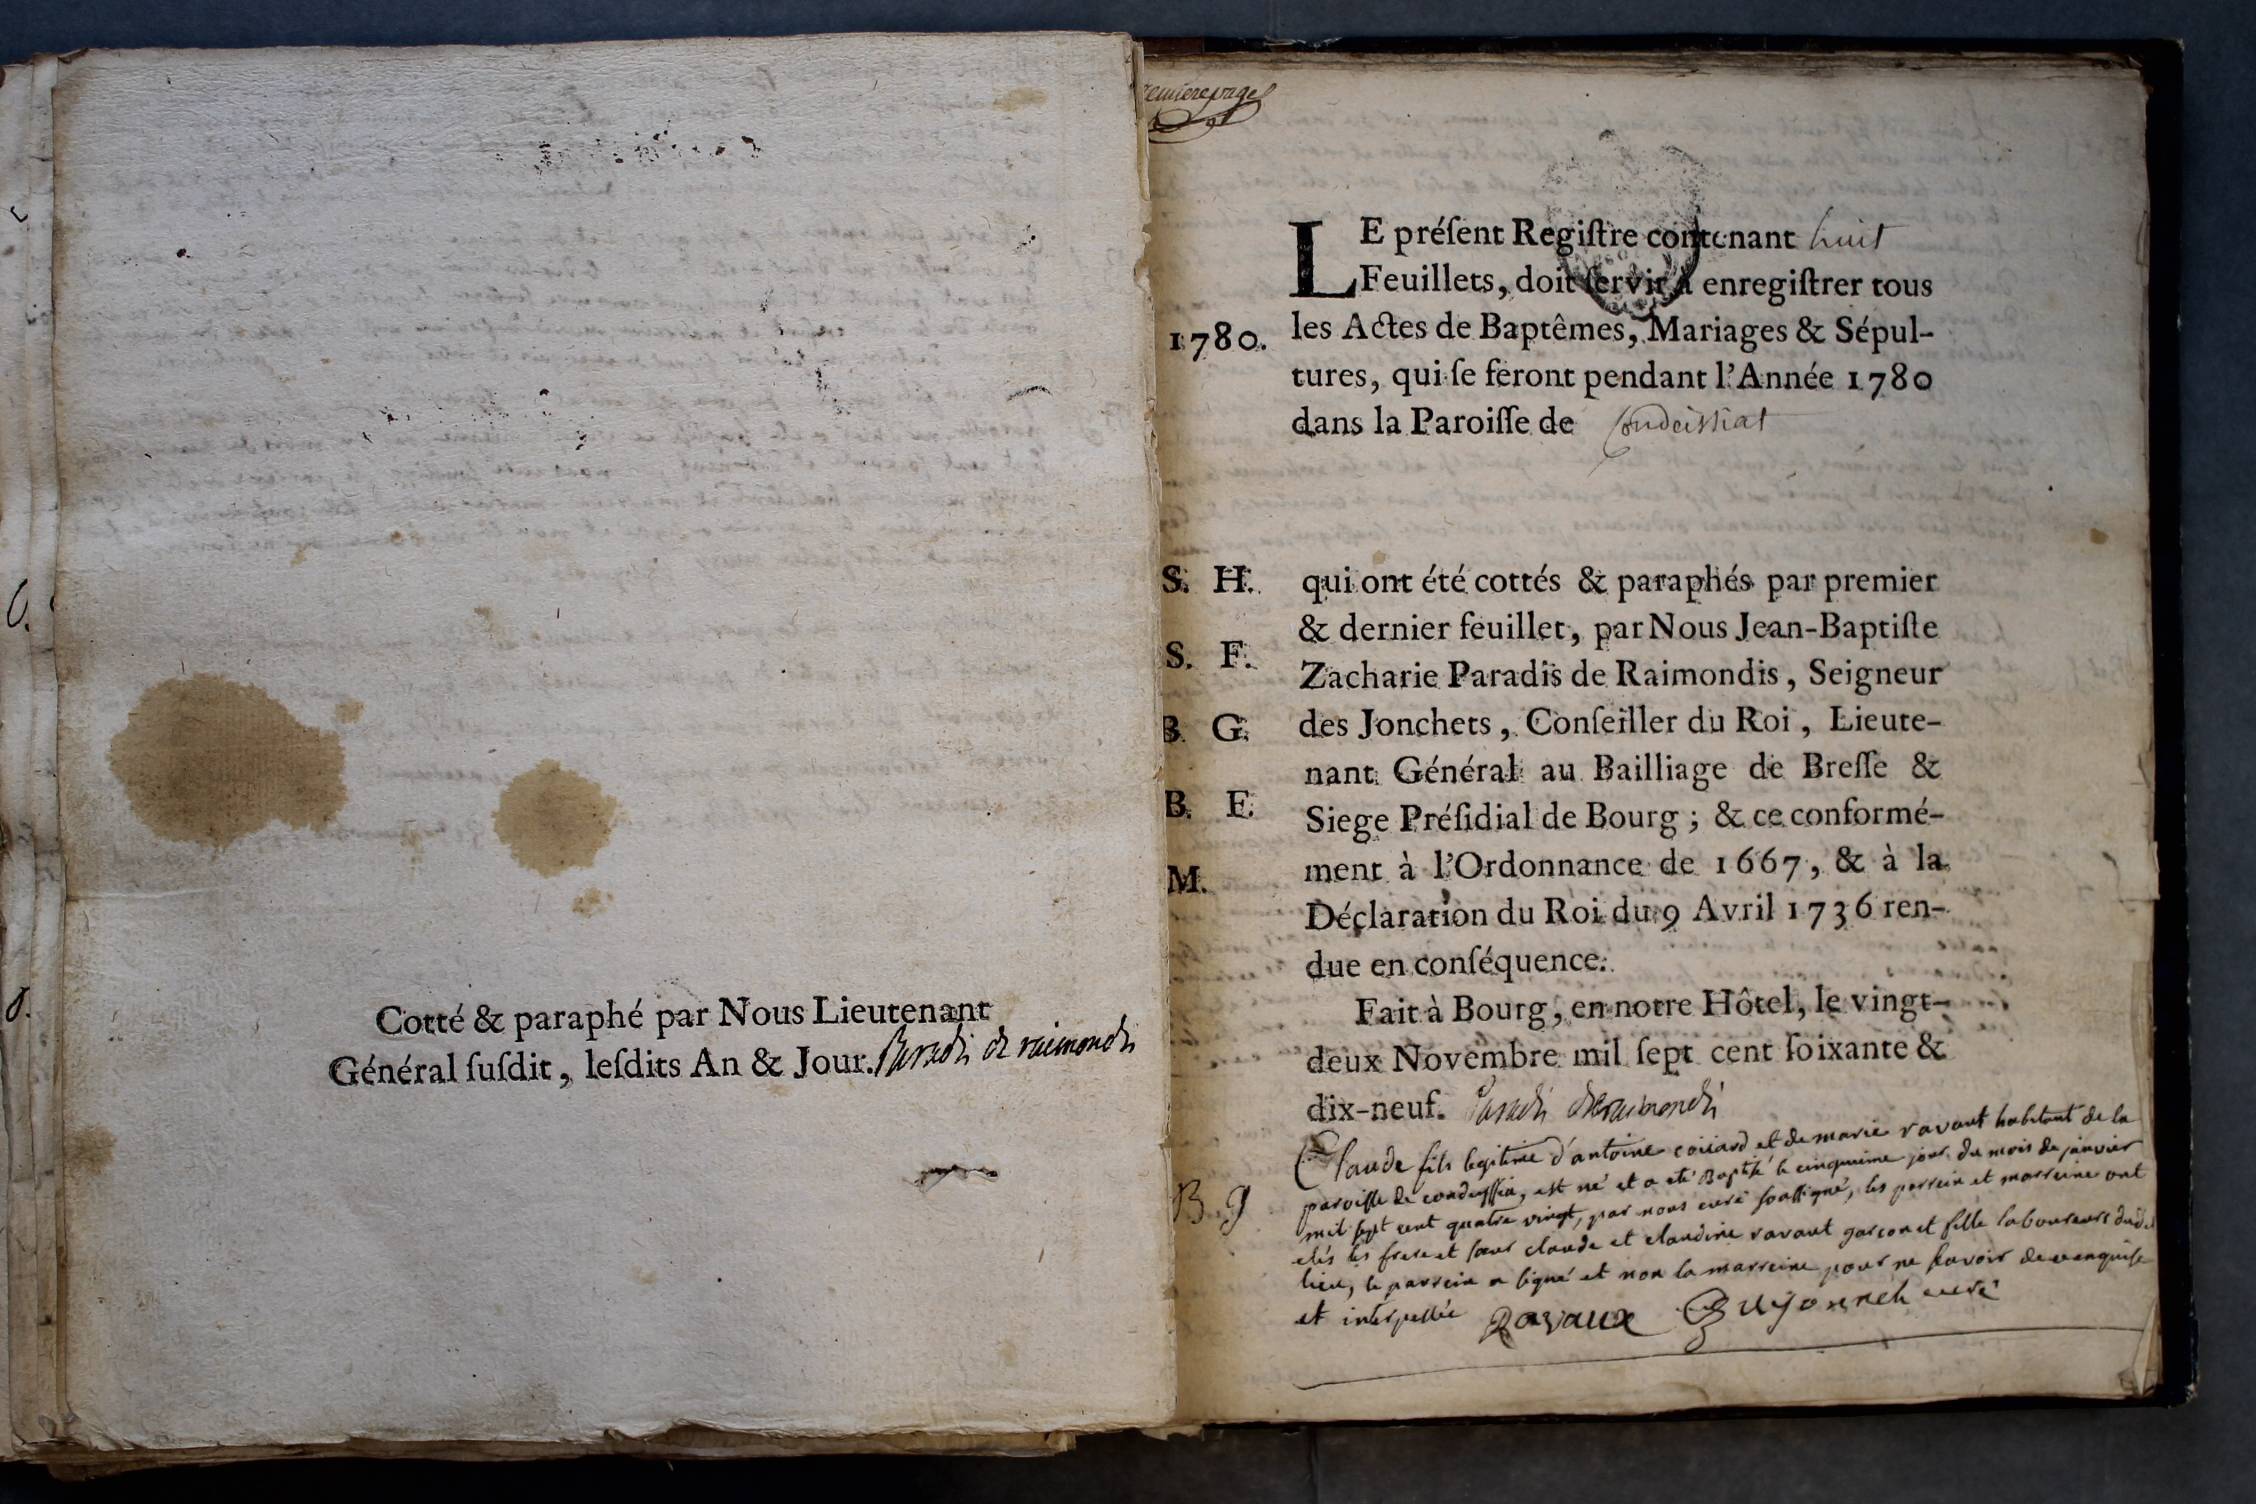 Cotté & paraphé par Nous Lieutenant
Général ſuſdit, leſdits An & Jour. Paradis de raimondis
premiere page
LE préſent Regiſtre contenant huit
Feuillets, doit ſervir à enregiſtrer tous
1780. les Actes de Baptêmes, Mariages & Sépul-
tures, qui ſe feront pendant l'Année 1780
dans la Paroiſſe de Condeissiat
S. H. qui ont été cottés & paraphés par premier
& dernier feuillet, par Nous Jean-Baptiſte
S. F. Zacharie Paradis de Raimondis, Seigneur
B. G. des Jonchets, Conſeiller du Roi, Lieute-
nant Général au Bailliage de Breſſe &
B. F. Siege Préſidial de Bourg; & ce conformé-
M. ment à l'Ordonnance de 1667, & à la
Déclaration du Roi du 9 Avril 1736 ren-
due en conſéquence.
Fait à Bourg, en notre Hôtel, le vingt-
deux Novembre mil ſept cent ſoixante &
dix-neuf. Paradis de raimondis
Claude fils legitime d'antoine coiiard et de marie ravaut habitant de la
paroiſſe de condeyſſia, est né et a eté Baptisé le cinquieme jour du mois de janvier
B. g mil ſept cent quatre vingt, par nous curé ſouſſigné, les parrein et marreine ont
etés les frere et ſœur claude et claudine ravaut garçon et fille laboureurs dudit
lieu, le parrein a ſigné et non la marreine pour ne ſavoir de ce enquiſe
et interpellée Ravaux Guyonneh curé